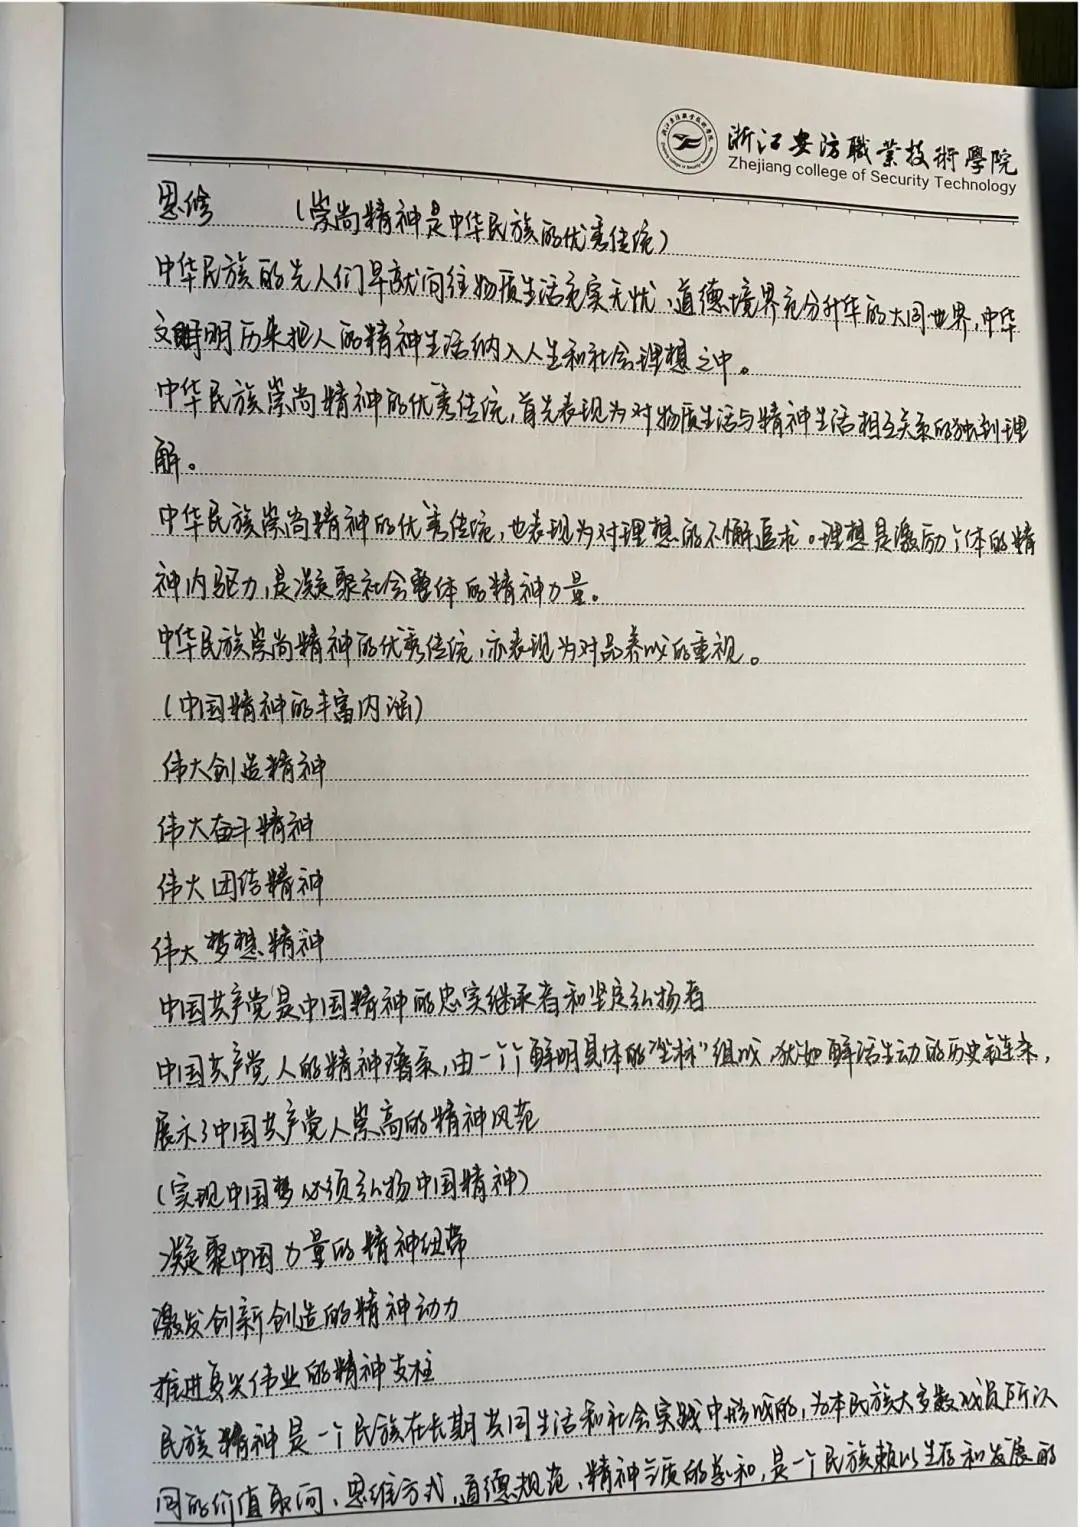 浙江安防職業技術學院
Zhejiang college of Security Technology
思修 （崇尚精神是中华民族的优秀传统）
中华民族的先人们早就向往物质生活充实无忧、道德境界充分升华的大同世界，中华
文明历来把人的精神生活纳入人生和社会理想之中。
中华民族崇尚精神的优秀传统，首先表现为对物质生活与精神生活相互关系的独到理
解。
中华民族崇尚精神的优秀传统，也表现为对理想的不懈追求。理想是激励个体的精
神内驱力，是凝聚社会整体的精神力量。
中华民族崇尚精神的优秀传统，亦表现为对品养以的重视。
（中国精神的丰富内涵）
伟大创造精神
伟大奋斗精神
伟大团结精神
伟大梦想精神
中国共产党是中国精神的忠实继承者和坚定弘扬者
中国共产党人的精神谱系，由一个个鲜明具体的"坐标"组成，犹如鲜活生动的历史链条，
展示了中国共产党人崇高的精神风范
（实现中国梦必须弘扬中国精神）
凝聚中国力量的精神纽带
激发创新创造的精神动力
推进复兴伟业的精神支柱
民族精神是一个民族在长期共同生活和社会实践中形成的，为本民族大多数成员所认
同的价值取向、思维方式、道德规范、精神气质的总和，是一个民族赖以生存和发展的